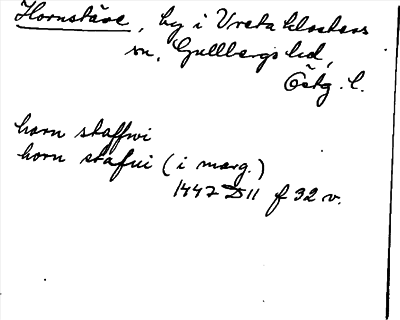 Hornstäve, by i Vreta klosters
sn, Gullbergs hd,
Östg. l.
horn staffwi
horn stafui (i marg.)
1447 D 11 f 32 v.